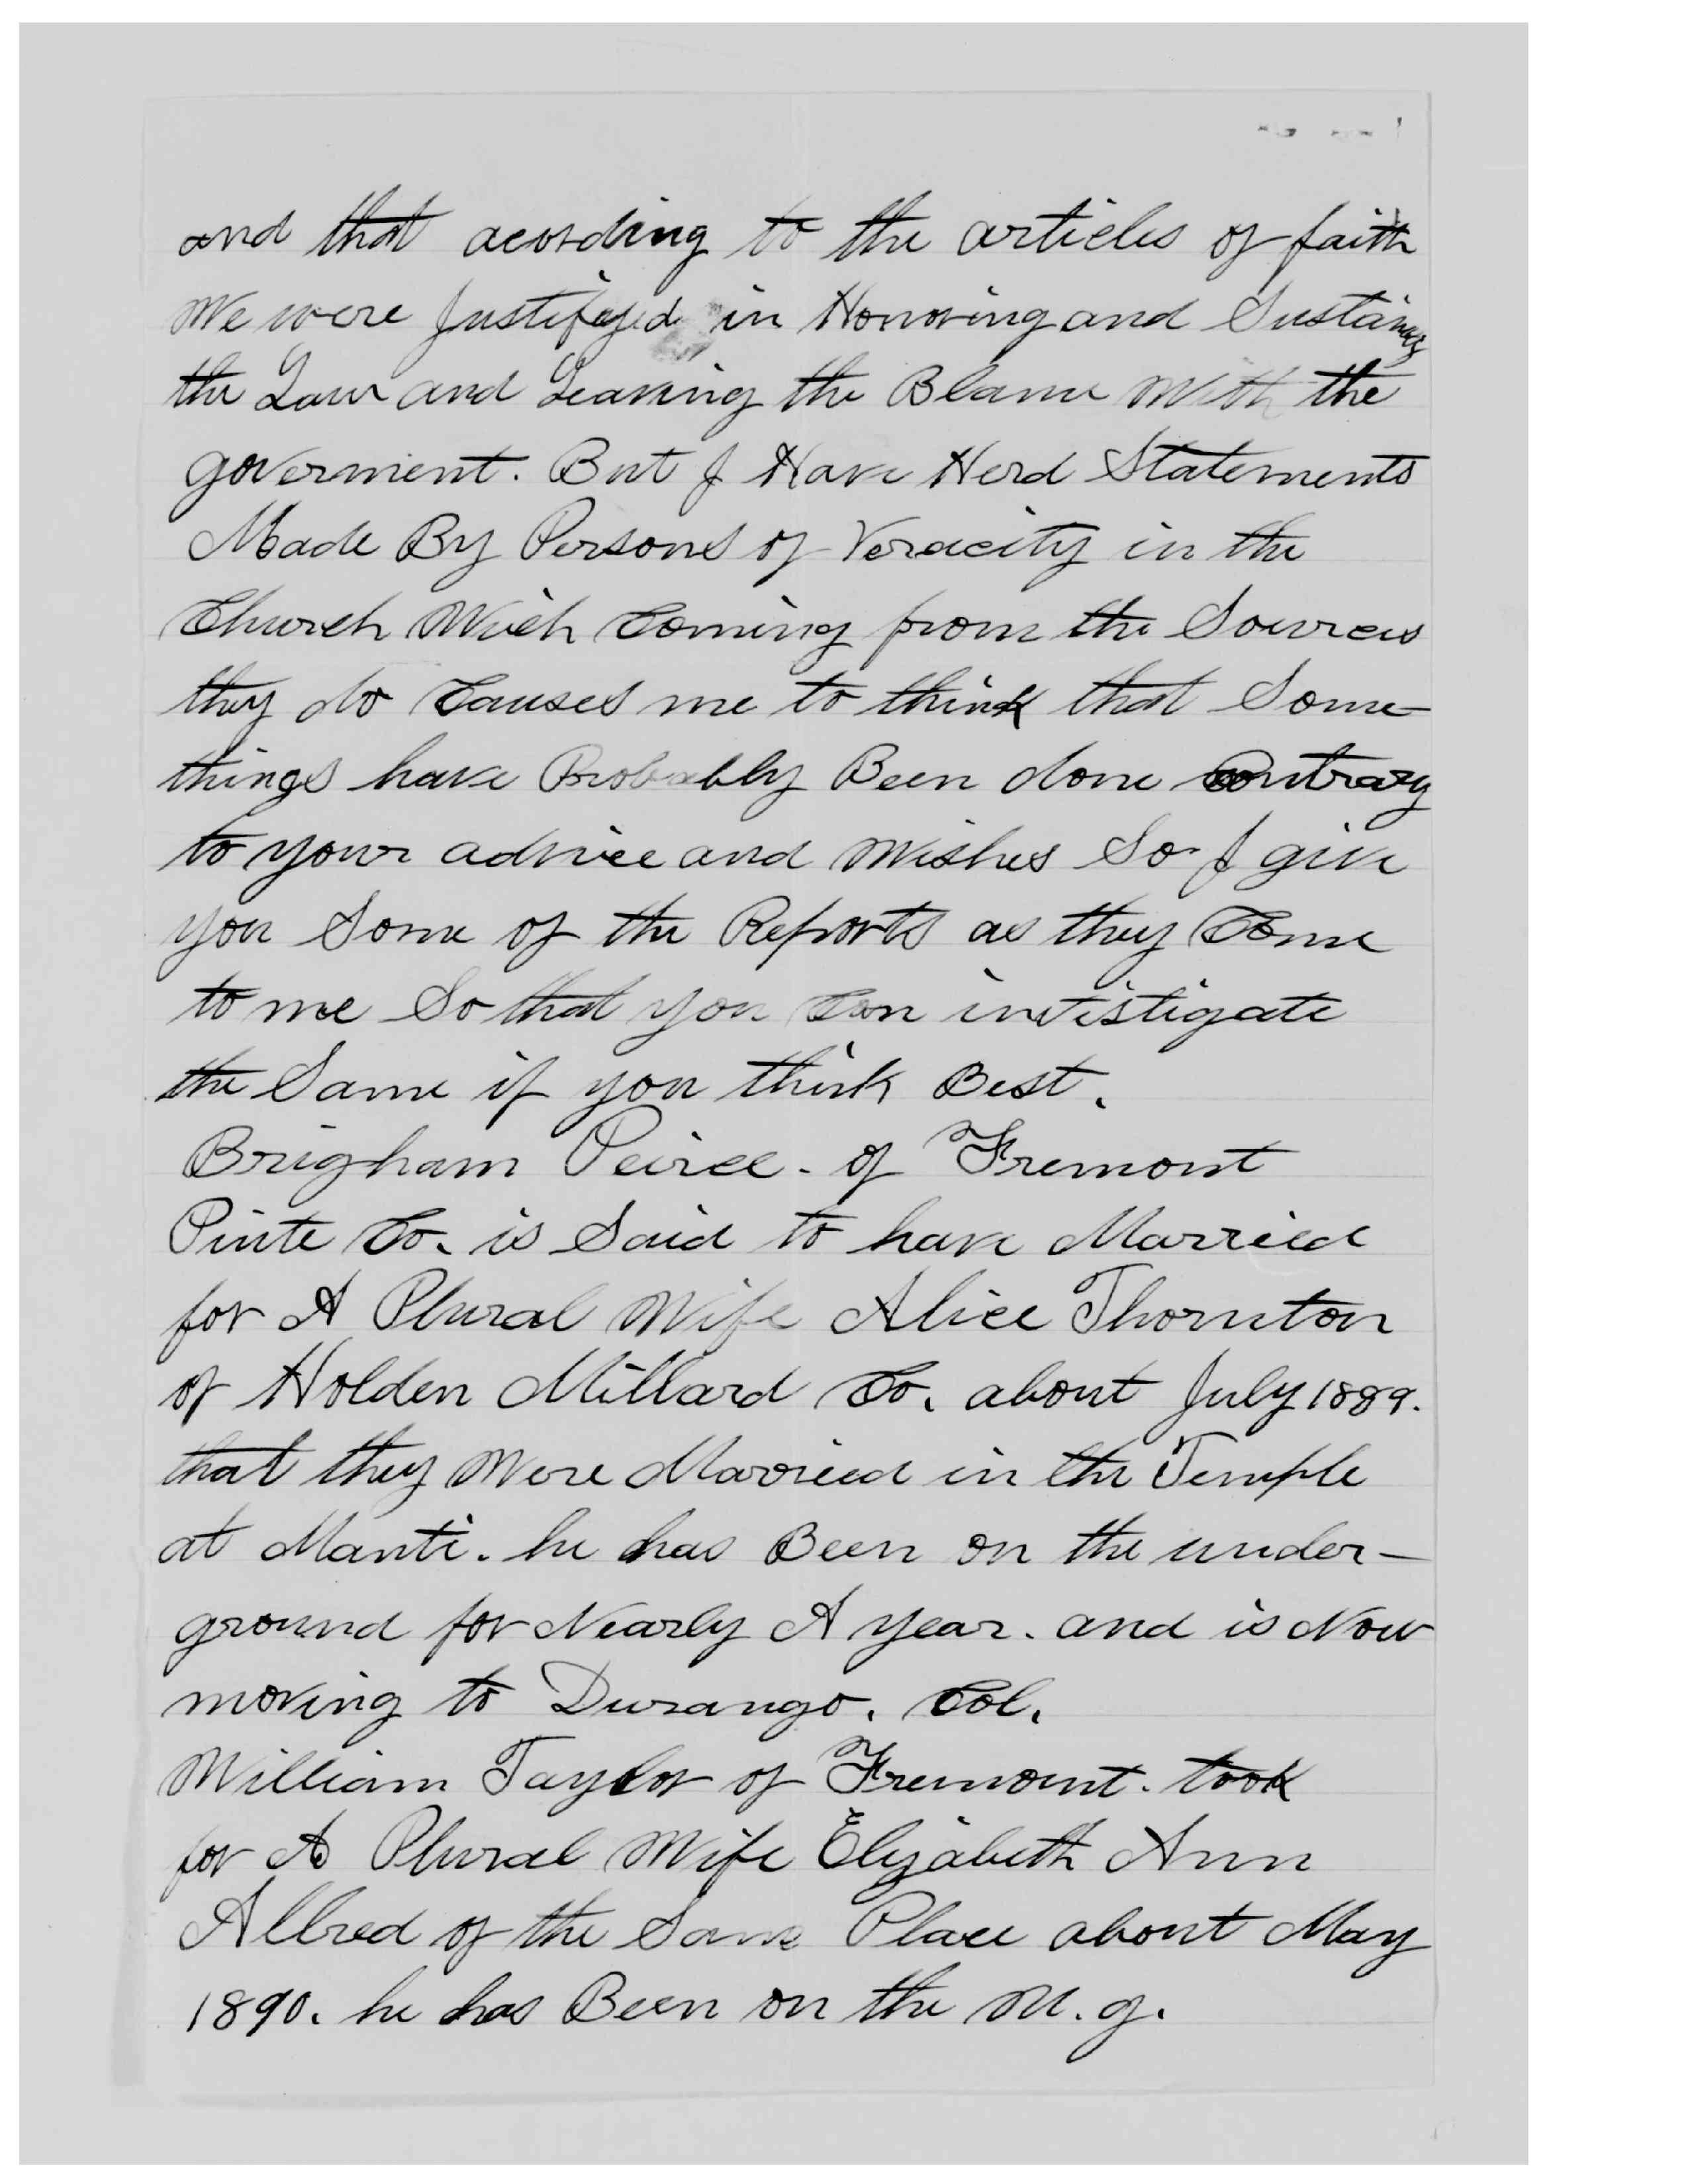 and that acording to the articles of faith
We were Justifyed in Honoring and Sustaining
the Law and Leaving the Blame With the
goverment. But I Have Herd Statements
Made By Persons of Veracity in the
Church Wich Coming from the Sources
they do Causes me to think that Some
things have Probably Been done Contrary
to your advice and Wishes So I give
you Some of the Reports as they Come
to me So that you Can investigate
the Same if you think Best.
Brigham Peirce. of Fremont
Piute Co. is Said to have Married
for A Plural Wife Alice Thornton
of Holden Millard Co. about July 1889.
that they Were Married in the Temple
at Manti. he has Been on the under-
ground for Nearly A year. and is Now
moving to Durango. Col.
William Taylor of Fremont. took
for A Plural Wife Elizabeth Ann
Allred of the Same Place about May
1890. he has Been on the u.g.